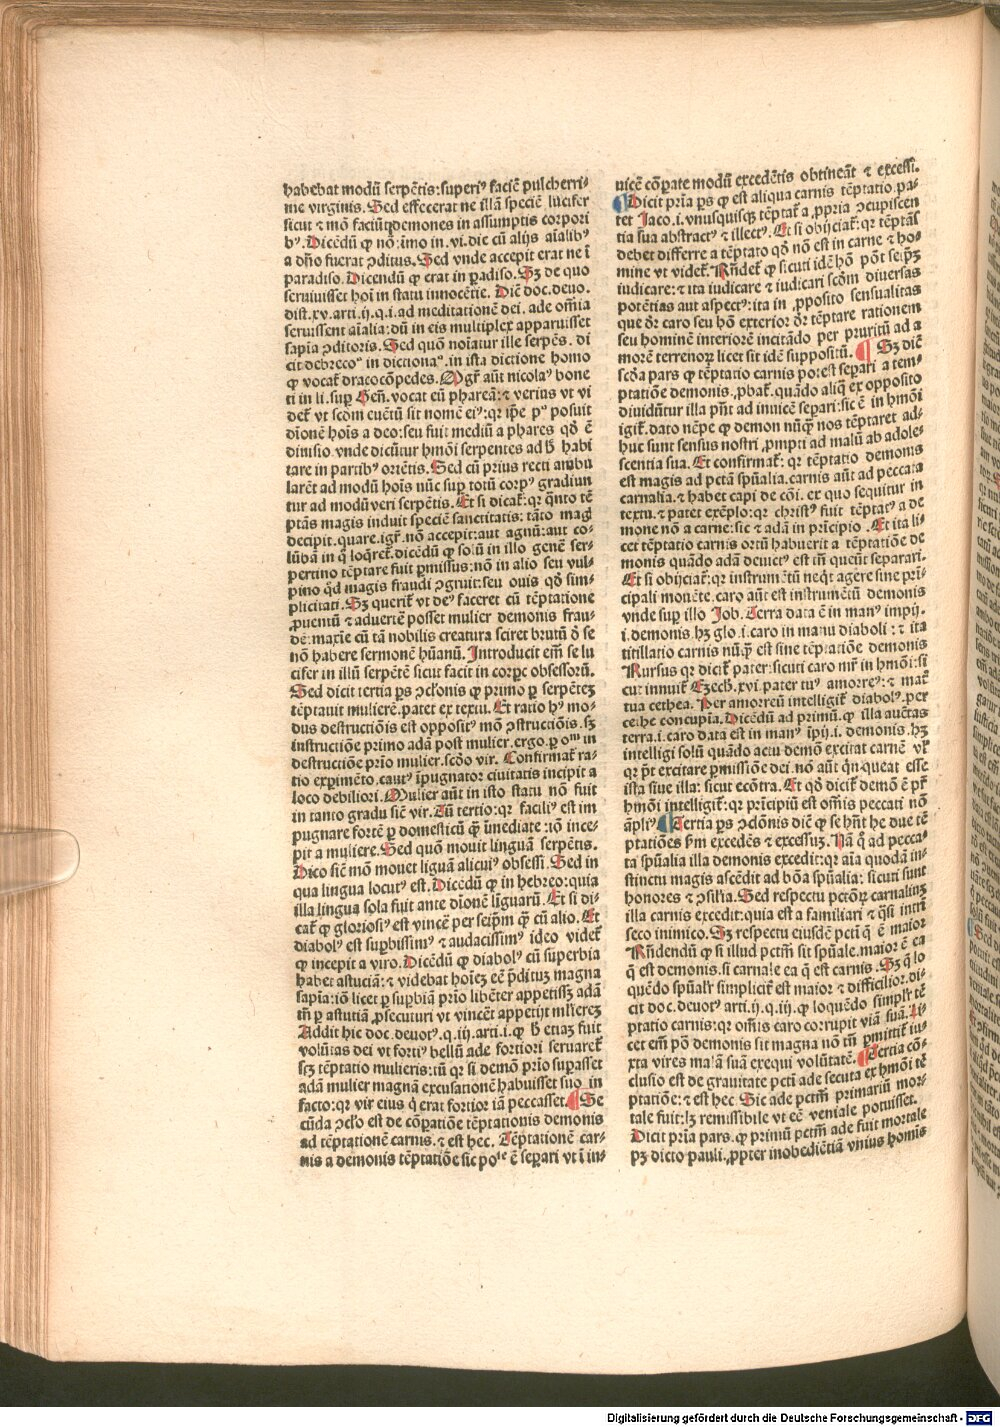 habebat modū serpētis: superiꝰ faciē pulcherri-
me virginis. Sed effecerat ne illā speciē lucifer
sicut ⁊ mō faciūt demones in assumptis corpori
bꝰ. Dicēdū ꝙ nō: imo in. vi. die cū alijs aīalibꝰ
a dn̄o fuerat ꝯditus. Sed vnde accepit erat ne ī
paradiso. Dicendū ꝙ erat in ꝑadiso. Sꝫ de quo
seruiuisset hoī in statu innocētie. Diē doc. deuo.
dist. xv. arti. ij. q. i. ad meditationē dei. ade oīa
seruissent aīalia: dū in eis multiplex apparuisset
sapīa ꝯditoris. Sed quō noīatur ille serpēs. di
cit debrecoᵒ in dictionaᵒ. in ista dictione homo
ꝙ vocat̄ dracocōpedes. Mgr̄ aūt nicolaꝰ bone
ti in li. suꝑ Gen̄. vocat eū phareā: ⁊ verius vt vi
det̄ vt scd̄m euētū sit nomē eiꝰ: qꝛ ip̄e pᵒ posuit
dīonē hoīs a deo: seu fuit mediū a phares qd̄ ē
diuisio. vnde dicūtur hmōi serpentes ad h̄ habi
tare in partibꝰ oriētis. Sed cū prius recti ambu
larēt ad modū hoīs nūc suꝑ totū corpꝰ gradiun
tur ad modū veri serpētis. Et si dicat̄: qꝛ q̄nto tē
ptās magis induit speciē sanctitatis: tāto magꝭ
decipit. quare. igr̄. nō accepit: aut agnū: aut co-
lūbā in q̄ loq̄ret̄. dicēdū ꝙ solū in illo genē ser-
pertino tēptare fuit ꝑmissus: nō in alio seu vul-
pino qd̄ magis fraudi ꝯgruit: seu ouis qd̄ sim-
plicitati. Sꝫ querit̄ vt deꝰ faceret cū tēptatione
ꝓuentū ⁊ aduertē posset mulier demonis frau-
dē: maxīe cū tā nobilis creatura sciret brutū d̄ se
nō habere sermonē hūanū. Introducit em̄ se lu
cifer in illū serpētē sicut facit in corpe obsessorū.
Sed dicit tertia ꝑs ꝯclōnis ꝙ primo ꝑ serpētē
tēptauit mulierē. patet ex textu. Et ratio hꝰ mo-
dus destructiōis est oppositꝰ mō ꝯstructiōis. sꝫ
instructiōe primo adā post mulier. ergo. ꝑ oᵐ in
destructiōe prīo mulier. scdo vir. Confirmat̄ ra-
tio exꝑimēto. cautꝰ īpugnator ciuitatis incipit a
loco debiliori. Mulier aūt in isto statu nō fuit
in tanto gradu siē vir. Tū tertio: qꝛ faciliꝰ est im
pugnare fortē ꝑ domesticū q̄ īmediate: iō ince-
pit a muliere. Sed quō mouit linguā serpētis.
Dico siē mō mouet liguā alicuiꝰ obsessi. Sed in
qua lingua locutꝰ est. Dicēdū ꝙ in hebreo: quia
illa lingua sola fuit ante diōnē liguarū. Et si di-
cat̄ ꝙ gloriosiꝰ est vincē per seip̄m q̄ cū alio. Et
diabolꝰ est suꝑbissimꝰ ⁊ audacissimꝰ ideo videt̄
ꝙ incepit a viro. Dicēdū ꝙ diabolꝰ cū suꝑbia
habet astuciā: ⁊ videbat hoīeꝫ eē p̄ditū magna
sapīa: iō licet ꝑ suꝑbiā prīo libēter appetisset adā
tn̄ ꝑ astutiā ꝓsecuturi vt vincēt appetijt mlīerē
Addit hic doc. deuotꝰ. q. iij. arti. i. ꝙ h̄ etiaꝫ fuit
volūtas dei vt fortiꝰ bellū ade fortiori seruaret̄
sꝫ tēptatio mulieris: tū qꝛ si demō prīo suꝑasset
adā mulier magnā excusationē habuisset suo in
facto: qꝛ vir eius q̄ erat fortior iā peccasset. ¶ Se
cūda ꝯclō est de cōꝑatiōe tēptationis demonis
ad tēptationē carnis. ⁊ est hec. Tēptationē car-
nis a demonis tēptatiōe sic poˡᵉ ē seꝑari vt ī in-
uicē cōꝑate modū excedētis obtineāt ⁊ excessi.
¶ Dicit prīa ꝑs ꝙ est aliqua carnis tēptatio. pa-
tet Jaco. i. vnusquisꝗ tēptat̄ a ꝓpria ꝯcupiscen
tia sua abstractꝰ ⁊ illectꝰ. Et si obijciat̄: qꝛ tēptās
debet differre a tēptato qd̄ nō est in carne ⁊ ho-
mine vt videt̄. Rn̄det̄ ꝙ sicuti idē hō pōt seip̄ꝫ
iudicare: ⁊ ita iudicare ⁊ iudicari scd̄m diuersas
potētias aut aspectꝰ: ita in ꝓposito sensualitas
que dr̄ caro seu hō exterior dr̄ tēptare rationem
seu hominē interiorē incitādo per pruritū ad a
morē terrenoꝝ licet sit idē suppositū. ¶ Sꝫ diē
scd̄a pars ꝙ tēptatio carnis po: est seꝑari a tem-
ptatiōe demonis. ꝓbat̄. quādo aliq̄ ex opposito
diuidūtur illa pn̄t ad inuicē seꝑari: sic ē in hmōi
igit̄. dato nēpe ꝙ demon nūq̄ nos tēptaret ad-
huc sunt sensus nostri ꝓmpti ad malū ab adole-
scentia sua. Et confirmat̄: qꝛ tēptatio demonis
est magis ad petā sp̄ualia. carnis aūt ad peccata
carnalia. ⁊ habet capi de cōi. ex quo sequitur in
textu. ⁊ patet exēplo: qꝛ christꝰ fuit tēptatꝰ a de
mone nō a carne: sic ⁊ adā in prīcipio. Et ita li-
cet tēptatio carnis ortū habuerit a tēptatiōe de
monis quādo adā deuictꝰ est tn̄ queūt separari.
Et si obijciat̄: qꝛ instrumētū neq̄t agere sine prī-
cipali mouēte. caro aūt est instrumētū demonis
vnde suꝑ illo Job. Terra data ē in manꝰ impij.
i. demonis. hꝫ glo. i. caro in manu diaboli: ⁊ ita
titillatio carnis nūq̄ est sine tēptatiōe demonis
Rursus qꝛ dicit̄ pater: sicuti caro mr̄ in hmōi: si
cut innuit̄ Ezech. xvi. pater tuꝰ amorreꝰ: ⁊ mat̄
tua cethea. Per amorreū intelligit̄ diabolꝰ. per
cethe concupīa. Dicēdū ad primū. ꝙ illa auctas
terra. i. caro data est in manꝰ īpij. i. demonis. hꝫ
intelligi solū quādo actu demō excitat carnē vl̄
qꝛ pōt excitare ꝑmissiōe dei. nō aūt qn̄ queat esse
ista siue illa: sicut ecōtra. Et qd̄ dicit̄ demō ē pr̄
hmōi intelligit̄: qꝛ prīcipiū est oīs peccati nō
āpliꝰ ¶ Tertia ꝑs ꝯclōnis diē ꝙ se hn̄t he due tē
ptatiōes ꝑm excedēs ⁊ excessuꝫ. Nā q̄ ad pecca-
ta sp̄ualia illa demonis excedit: qꝛ aīa quodā in-
stinctu magis ascēdit ad bōa sp̄ualia: sicuti sunt
honores ⁊ ꝯsilia. Sed respectu petōꝝ carnaliuꝫ
illa carnis excedit: quia est a familiari ⁊ q̄si intrī
seco inimico. Sꝫ respectu eiusdē peti q̄ ē maior
Rn̄dendū ꝙ si illud petm̄ sit sp̄uale. maior ē ea
q̄ est demonis. si carnale ea q̄ est carnis. Sꝫ q̄ lo
quēdo sp̄ualr̄ simplicit̄ est maior ⁊ difficilior. di-
cit doc. deuotꝰ arti. ij. q. iij. ꝙ loquēdo simplr̄ tē
ptatio carnis: qꝛ oīs caro corrupit viā suā. Li-
cet em̄ pō demonis sit magna nō tn̄ ꝑmittit̄ iu-
xta vires malā suā exequi volūtatē. ¶ Tertia cō-
clusio est de grauitate peti ade secuta ex hmōi tē
ptatiōe: ⁊ est hec. Sic ade petm̄ primariū mor-
tale fuit: lꝫ remissibile vt eē veniale potuisset.
Dicit prīa pars. ꝙ primū petm̄ ade fuit mortale
pꝫ dicto pauli. ꝓpter inobediētiā vnius homīs
Digitalisierung gefördert durch die Deutsche Forschungsgemeinschaft - DFG